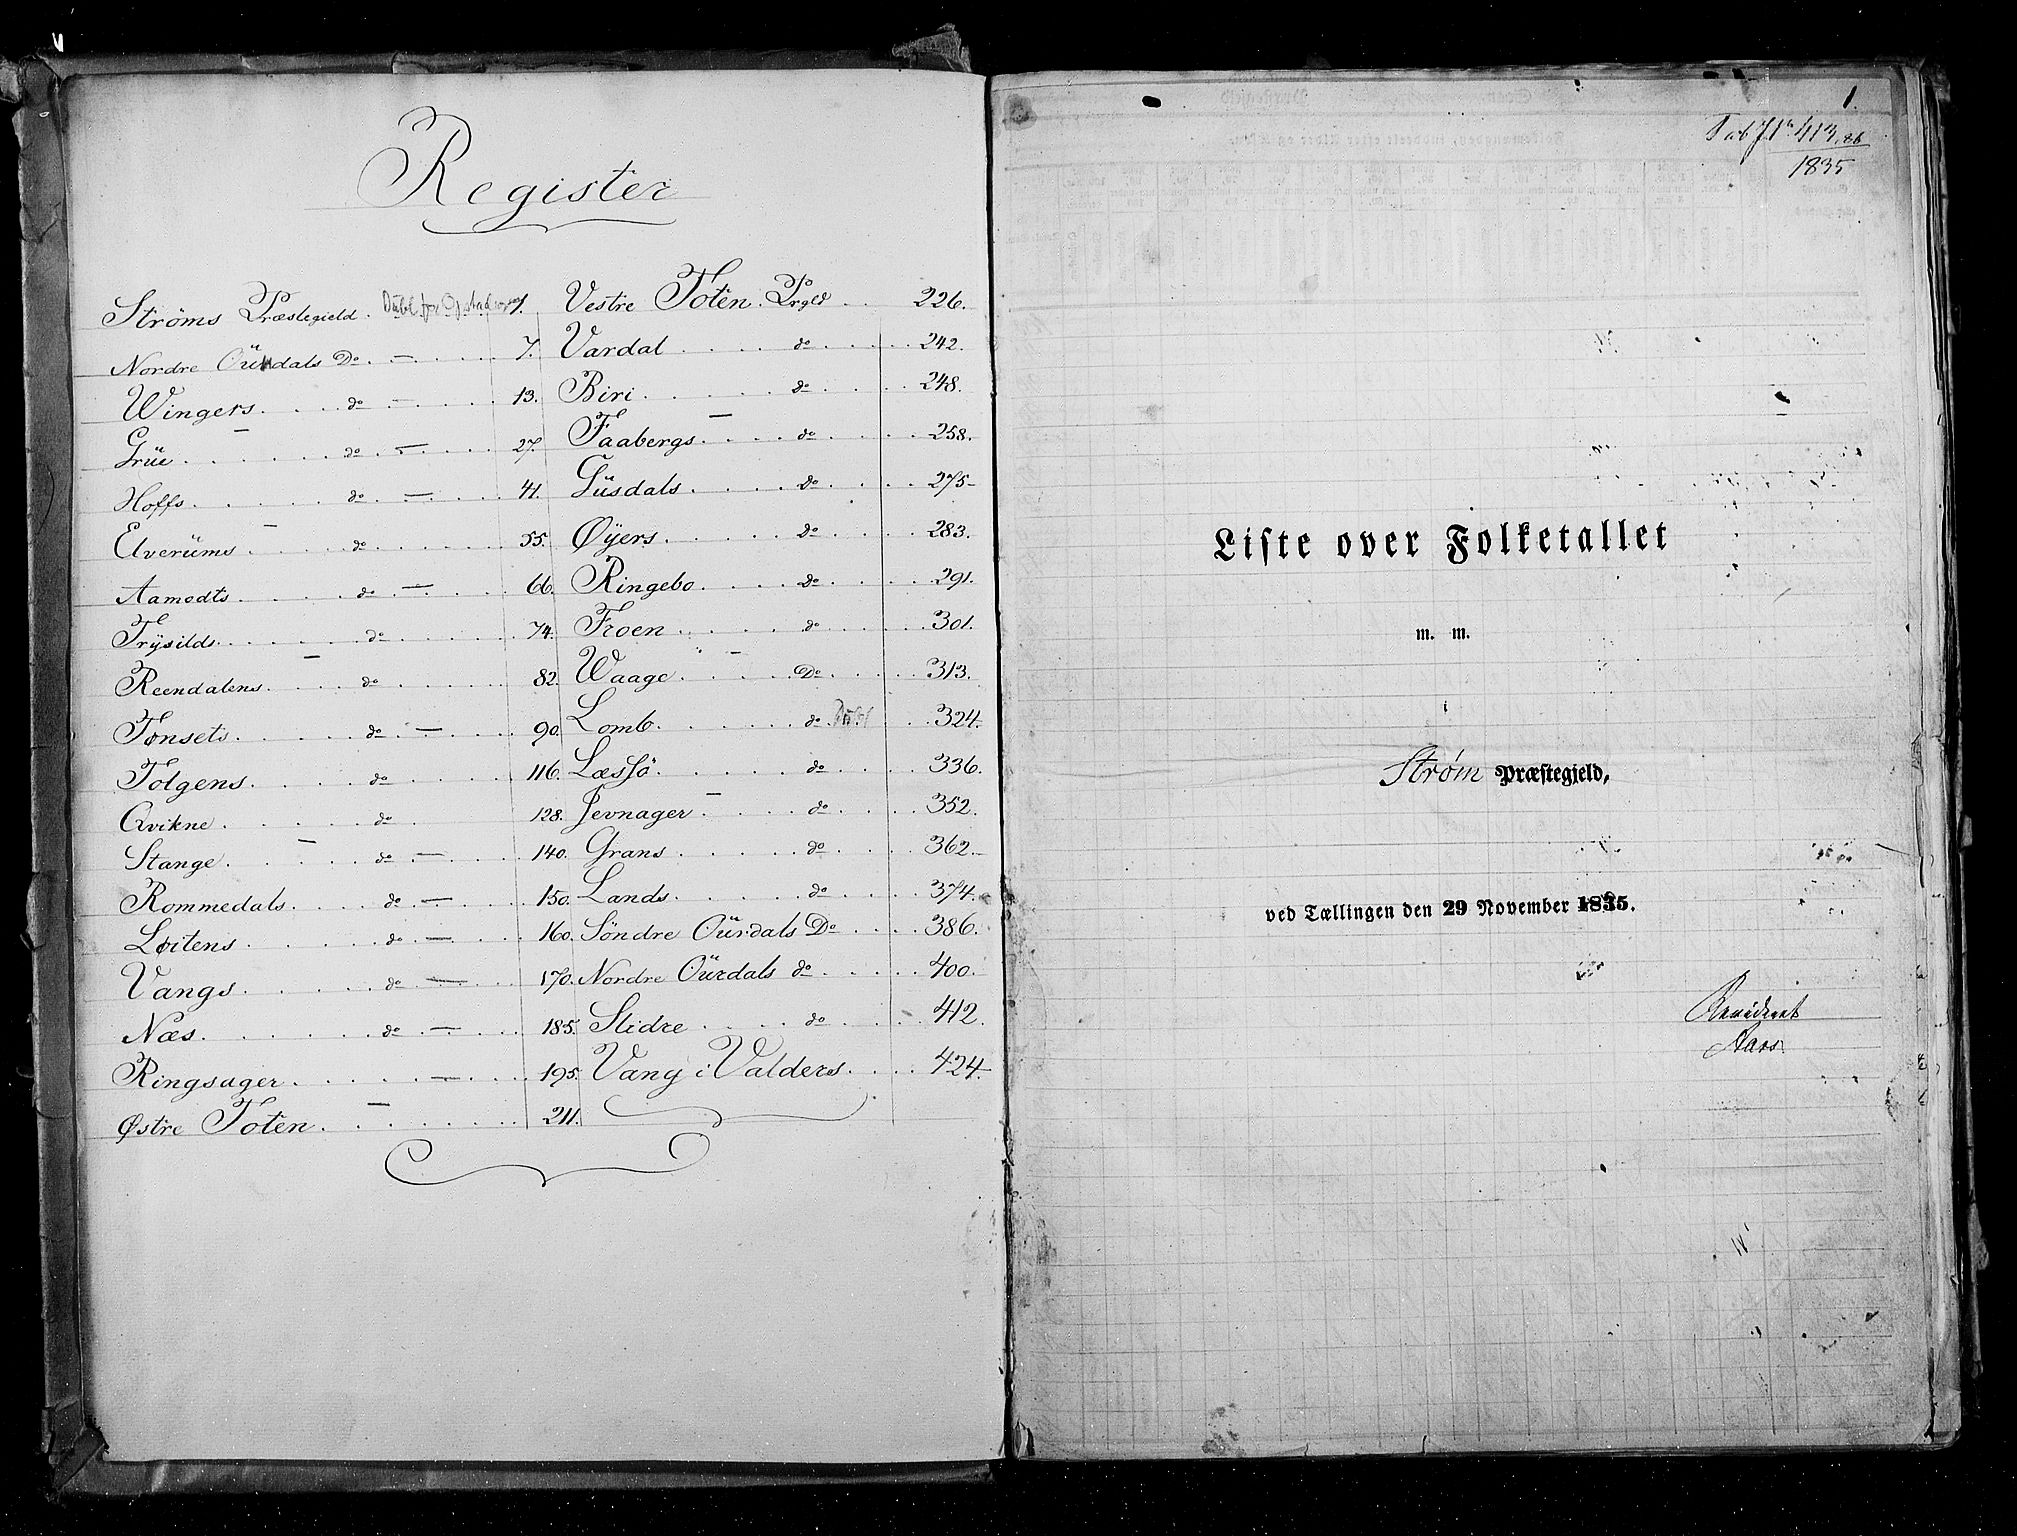 Register
Strøms Præstegield. 1.
Nordre Ourdals Do. — 7.
Wingers. do — 13.
Grüe. do — 27.
Hoffs. do — 41.
Elverüms. do 55.
Aamodts. do — 66.
Trÿsilds. do 74.
Reendalens. do 82.
Tønsets. do — 90.
Tolgens. do 116.
Qvikne. do 128.
Stange. do — 140.
Rommedals. do — 150.
Løitens. do — 160.
Vangs. do — 170.
Næs. do — 185.
Ringsager. — 195.
Østre Toten. 211.
Vestre Toten. Prgld 226.
Vardal. do 242.
Biri. do 248.
Faabergs. do 258.
Gusdals. Do 275
Øÿers. Do 283.
Ringebo. Do 291.
Froen. do 301.
Waage. Do 313.
Lomb. do 324.
Læssö. do 336.
Jevnager. do 352.
Grans. do 362.
Lands. do 374.
Söndre Oürdals Do 386.
Nordre Oürdals do 400.
Slidre. do 412.
Vang i Valders. 424.
1.
1835
Liste over Folketallet
m. m.
i
Strøm Præstegjeld,
ved Tællingen den 29 November 1835.
Revideret
Aars.